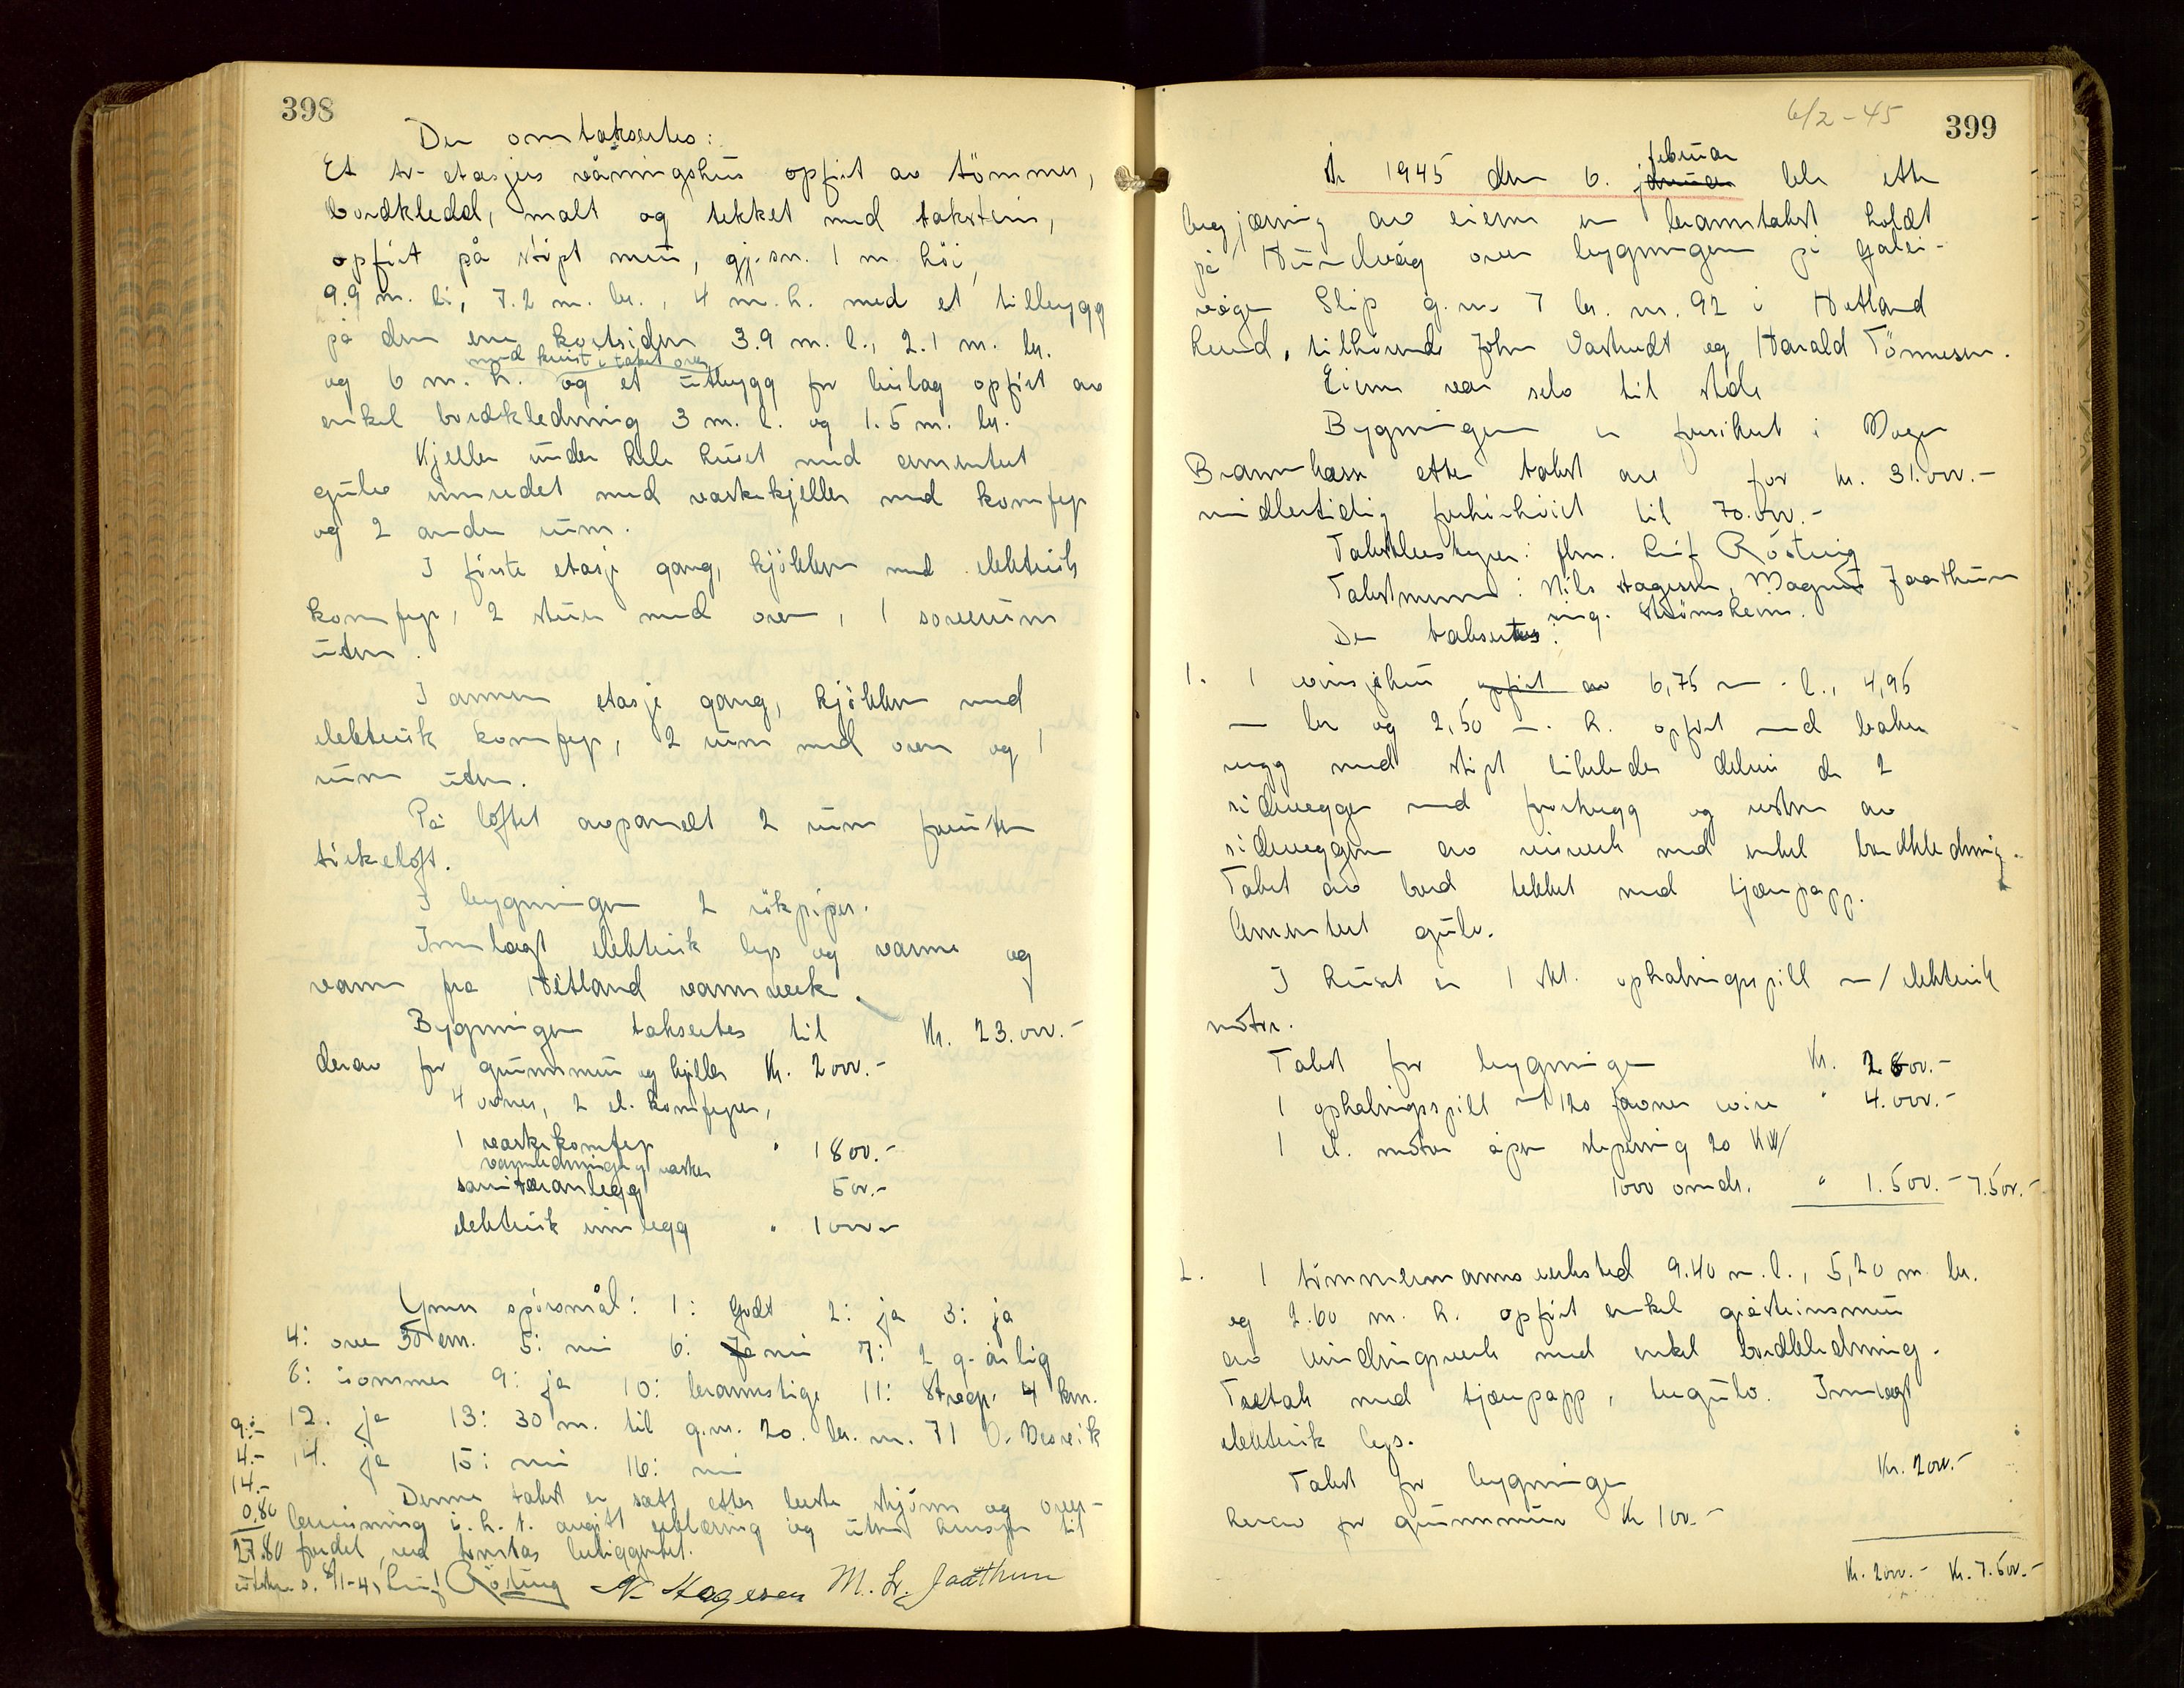 398
Der omtaksertes:
Et to-etasjers våningshus opført av tømmer,
bordkledd, malt og tekket med takstein,
opført på støpt mur, gj.sn. 1 m høi,
9.9 m. l., 7.2 m. br., 4 m. h. med et tilbygg
på den ene kortsiden 3.9 m. l., 2.1 m. br.
med kvist i taket over
og 6 m. h. og et utbygg for bislag opført av
enkel bordkledning 3 m. l. og 1.5 m. br.
Kjeller under hele huset med cementert
gulv innredet med vaskekjeller med komfyr
og 2 andre rum.
I første etasje gang, kjøkken med elektrisk
komfyr, 2 stuer med ovn, 1 soverum
uten.
I annen etasje gang, kjøkken med
elektrisk komfyr, 2 rum med ovn og 1
rum uten.
På loftet avpanelt 2 rum foruten
tørkeloft.
I bygningen 2 rökpiper.
Innlagt elektrisk lys og varme og
vann fra Hetland vannverk.
Bygningen taksertes til Kr. 23.000.-
derav for grunnmur og kjeller Kr. 2000.-
4 ovner, 2 el. komfyrer,
1 vaskekomfyr " 1800.-
vannledninger vasker
sanitæranlegg 500.-
elektrisk innlegg " 1000.-
Ymse spörsmål: 1: Godt 2: ja 3: ja
4: over 50 cm. 5: nei 6: Ja nei 7: 2 g. årlig
8: tömmer 9: ja 10: brannstige 11: Strop. 4 km.
9.- 12. ja 13: 30 m. til g.nr. 20. br. nr. 71 O. Vesvik
4.- 14. ja 15: nei 16: nei
14.- Denne takst er satt efter beste skjönn og over-
0.80 bevisning i. h. t. avgitt erklæring og uten hensyn til
27.80 fordel ved tomtas beliggenhet.
utskr. s. 8/1-45 Leif Rösting N. Hagesen M. L. Jaathun
6/2-45
399
År 1945 den 6. januar februar ble etter
begjæring av eieren en branntakst holdt
på Hundvåg over bygningene på Galei-
vågen Slip g.nr 7 br. nr. 92 i Hetland
herred, tilhörende John Vasthudt og Harald Tönnesen.
Eieren var selv til stede
Bygningene er forsikret i Norges
Brannkasse etter takst av for kr. 31.000.-
midlertidig forhöiet til 70.000.-
Takstbestyrer: flm. Leif Rösting
Takstmenn: Nils Hagesen, Magnus Jaathun
ing. Strömsheim.
Der taksertes:
1. 1 vinsjehus opført av 6,75 m. l., 4,95
m br og 2,50 m. h. opført med bakre
vegg med støpt likeledes delvis de 2
sidevegger med forstvegg og resten av
sideveggene av reisverk med enkel bordkledning.
Taket av bord tekket med tjærepapp.
Cementert gulv.
I huset er 1 stk. ophalingsspill m/ elektrisk
motor.
Takst for bygningen Kr. 2000.-
1 ophalingsspill m 120 favner wire " 4.000.-
1 el. motor åpen sleperring 20 KW
1000 omdr. " 1.500.- 7.500.-
2. 1 tömmermannsverksted 9.40 m. l., 5,20 m. br.
og 2.60 m. h. opført enkel gråsteinsmur
av bindingsverk med enkel bordkledning.
Tretak med tjærepapp, tregulv. Innlagt
elektrisk lys.
Takst for bygningen Kr. 2000.-
herav for grunnmur Kr 100.-
Kr. 2000.- Kr. 7.500.-